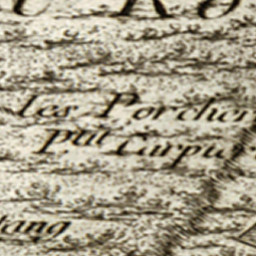 les Porcher
ptit Carpu
tang